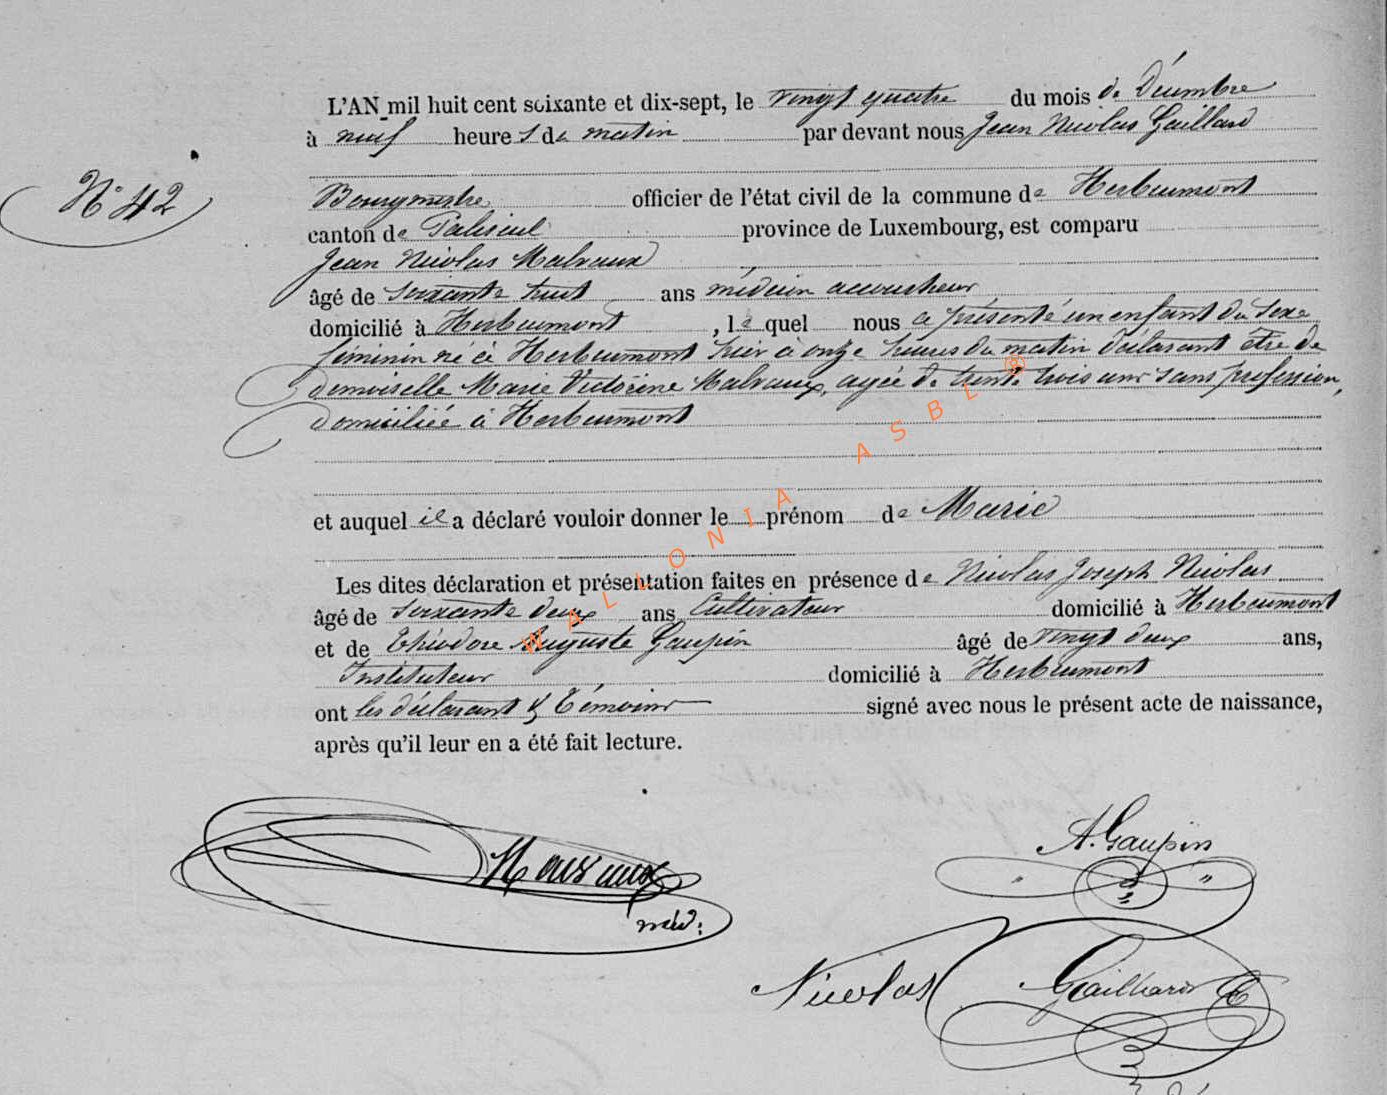 L'AN mil huit cent soixante et dix-sept, le vingt quatre du mois de Décembre
à neuf heures du matin par devant nous Jean Nicolas Gaillard
N° 42
Bourgmestre officier de l'état civil de la commune de Herbeumont
canton de Paliseul province de Luxembourg, est comparu
Jean Nicolas Malvaux
âgé de soixante huit ans médecin accoucheur
domicilié à Herbeumont, lequel nous a présenté un enfant du sexe
féminin né à Herbeumont hier à onze heures du matin déclarant être de
demoiselle Marie Victorine Malvaux, agée de trente trois ans sans profession,
domiciliée à Herbeumont
et auquel il a déclaré vouloir donner le prénom de Marie
Les dites déclaration et présentation faites en présence de Nicolas Joseph Nicolas
âgé de soixante deux ans Cultivateur domicilié à Herbeumont
et de Théodore Auguste Gaupin âgé de vingt deux ans,
Instituteur domicilié à Herbeumont
ont les déclarant & témoins signé avec nous le présent acte de naissance,
après qu'il leur en a été fait lecture.
WALLONIA ASBL ®
A. Gaupin
Malvaux
méd:
Nicolas Gaillard